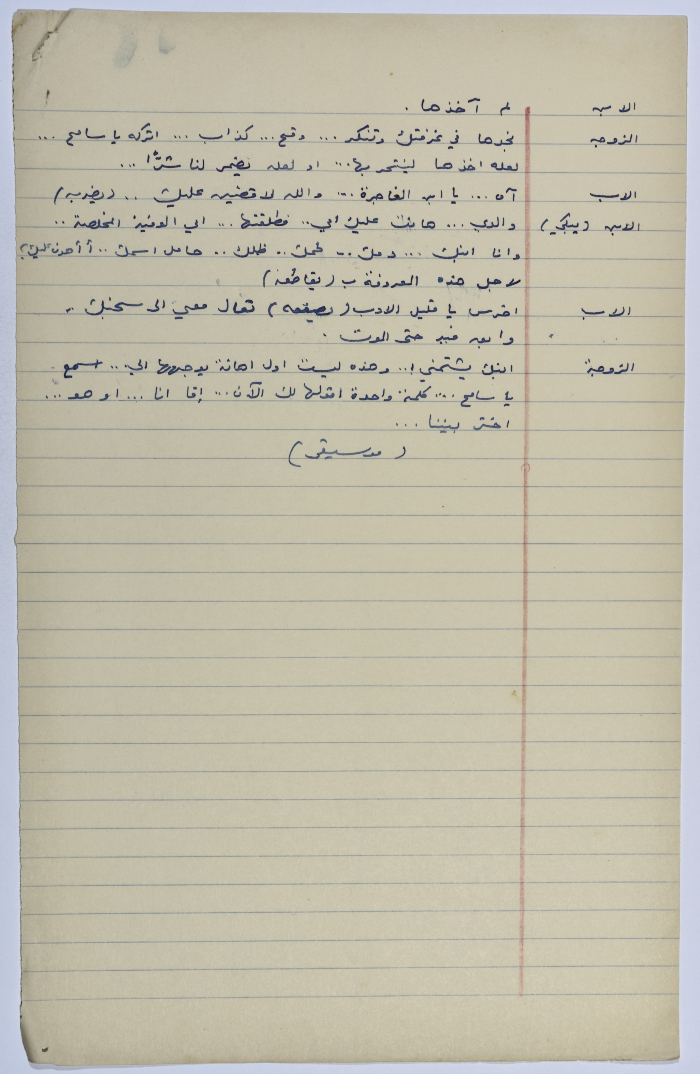 الابن لم آخذها .
الزوجة نجدها في غرفتك وتنكر ... وقح ... كذاب ... اتركه يا سامح ...
لعله اخذها لينتحر بها ... او لعله يضمر لنا شرًّا ...
الاب آه ... يا ابن الفاجرة ... والله لاقضين عليك .. (يضربه)
الابن (يبكي) والدي ... هانت عليك امي .. فطلقتها ... امي الوفية المخلصة ..
وانا ابنك ... دمك ... لحمك .. ظلك .. حامل اسمك .. أ أهون عليك؟
لاجل هذه المعروفة ب (يقاطعه)
الاب اخرس يا قليل الادب (يصفعه) تعال معي الى سجنك ..
وابق فيه حتى الموت .
الزوجة ابنك يشتمني !.. وهذه ليست اول اهانة يوجهها الي .. اسمع
يا سامح ... كلمة واحدة اقولها لك الآن ... إمّا انا ... او هو ...
اختر بيننا ...
( موسيقى )